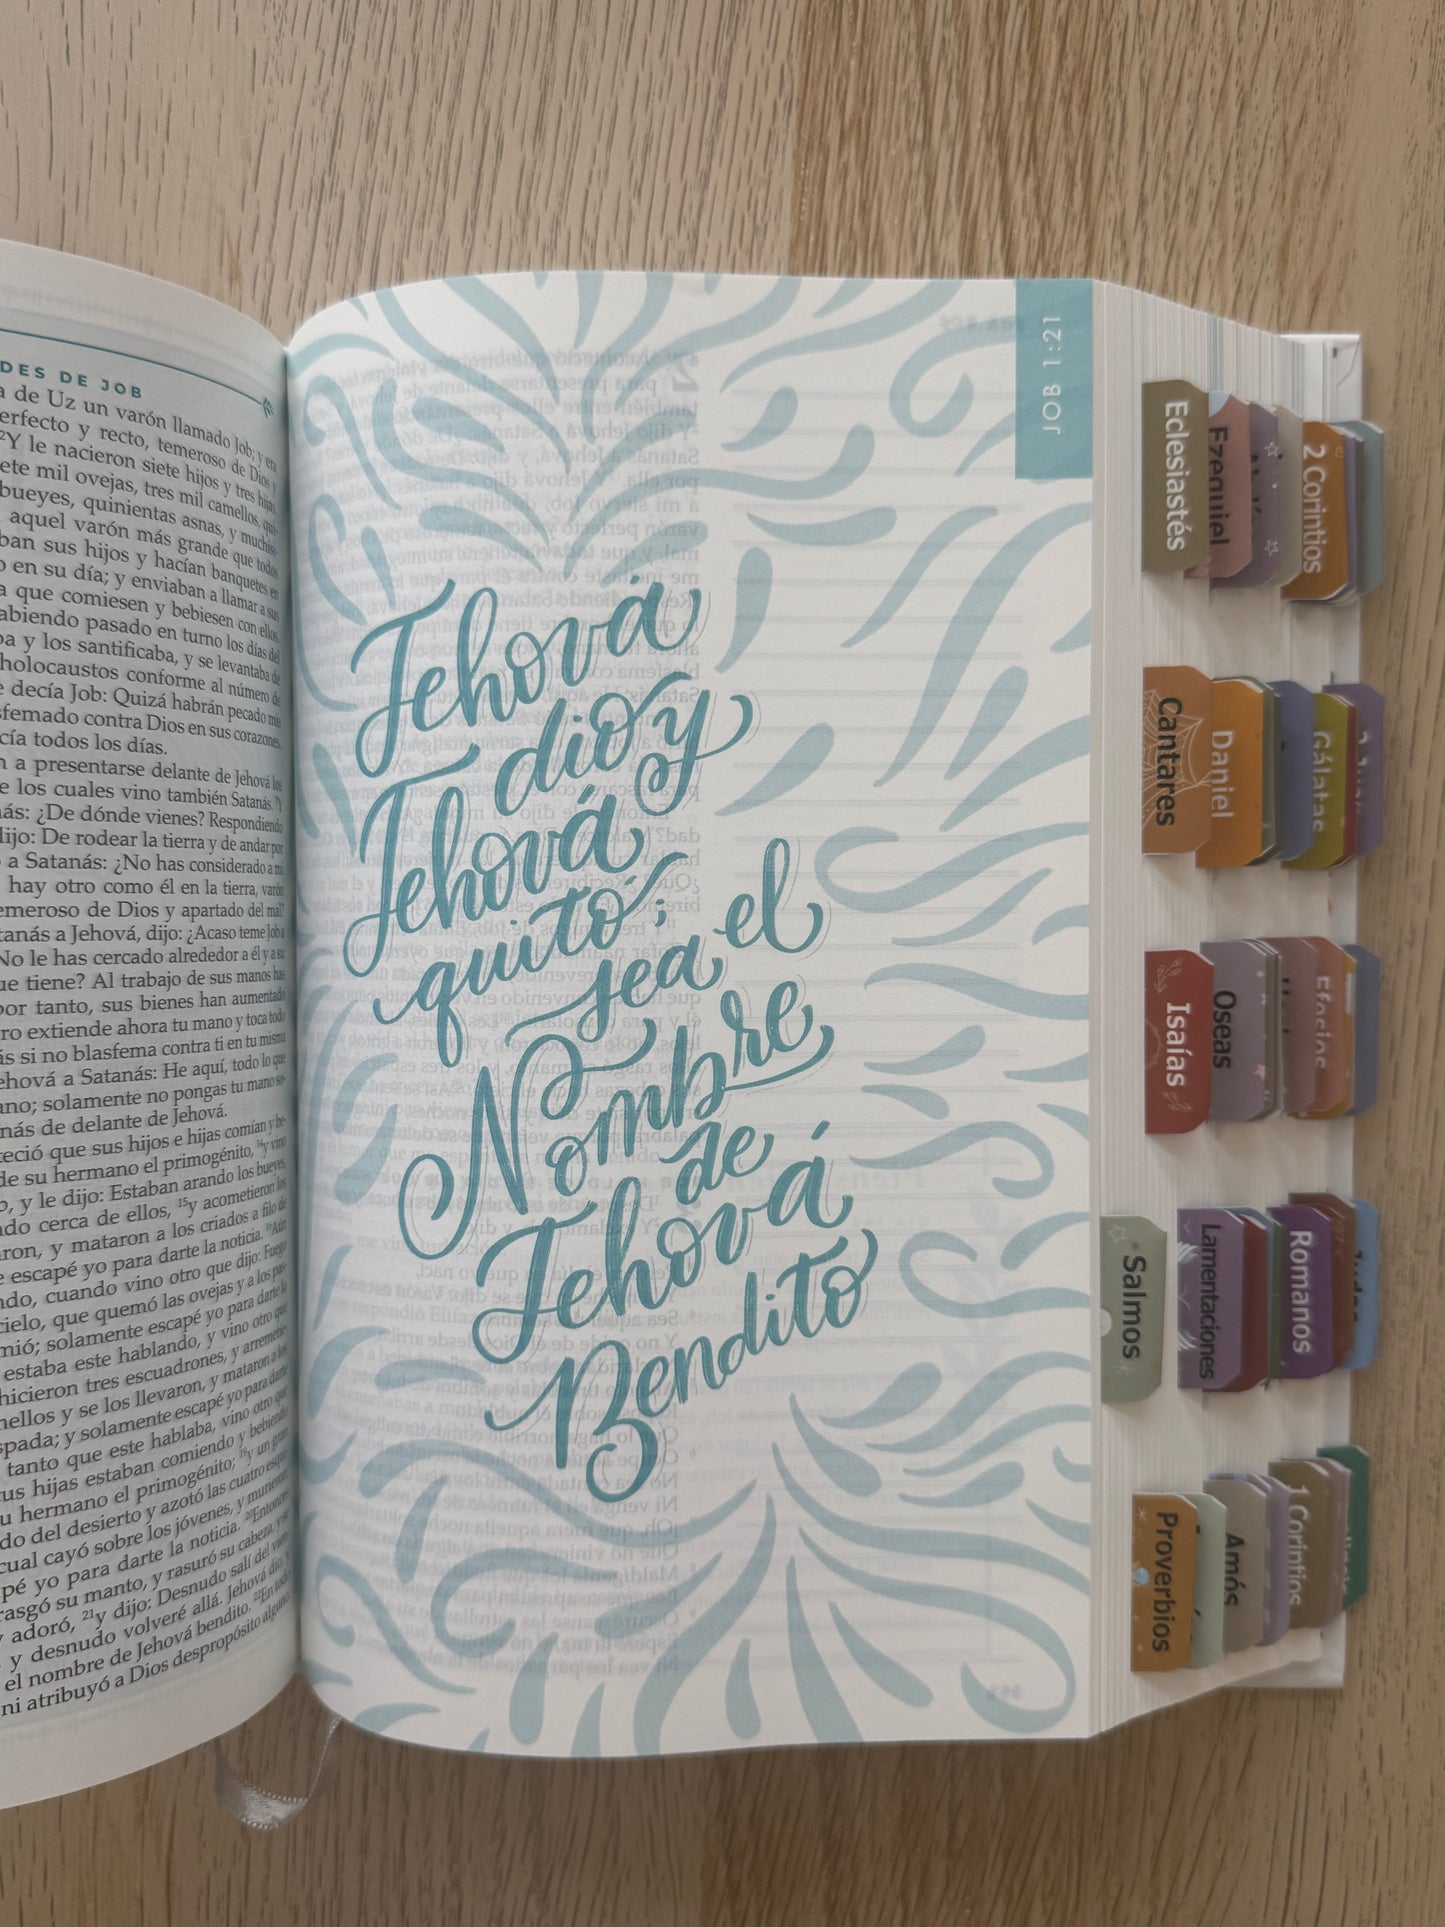 DES DE JOB
a de Uz un varón llamado Job; y era
erfecto y recto, temeroso de Dios y
²Y le nacieron siete hijos y tres hijas.
ete mil ovejas, tres mil camellos, qui-
bueyes, quinientas asnas, y muchísi-
aquel varón más grande que todos
ban sus hijos y hacían banquetes en
o en su día; y enviaban a llamar a sus
a que comiesen y bebiesen con ellos.
abiendo pasado en turno los días del
ba y los santificaba, y se levantaba de
holocaustos conforme al número de
e decía Job: Quizá habrán pecado mis
sfemado contra Dios en sus corazones.
cía todos los días.
n a presentarse delante de Jehová los
e los cuales vino también Satanás. ⁷Y
nás: ¿De dónde vienes? Respondiendo
dijo: De rodear la tierra y de andar por
a Satanás: ¿No has considerado a mi
hay otro como él en la tierra, varón
emeroso de Dios y apartado del mal?
tanás a Jehová, dijo: ¿Acaso teme Job a
No le has cercado alrededor a él y a su
ue tiene? Al trabajo de sus manos has
por tanto, sus bienes han aumentado
ro extiende ahora tu mano y toca todo
ás si no blasfema contra ti en tu misma
ehová a Satanás: He aquí, todo lo que
ano; solamente no pongas tu mano so-
nás de delante de Jehová.
teció que sus hijos e hijas comían y be-
de su hermano el primogénito, ¹⁴y vino
o, y le dijo: Estaban arando los bueyes,
ndo cerca de ellos, ¹⁵y acometieron los
aron, y mataron a los criados a filo de
e escapé yo para darte la noticia. ¹⁶Aún
ndo, cuando vino otro que dijo: Fuego
cielo, que quemó las ovejas y a los pas-
mió; solamente escapé yo para darte la
estaba este hablando, y vino otro que
hicieron tres escuadrones, y arremetie-
mellos y se los llevaron, y mataron a los
spada; y solamente escapé yo para darte
tanto que este hablaba, vino otro que
tus hijas estaban comiendo y bebiendo
u hermano el primogénito; ¹⁹y un gran
do del desierto y azotó las cuatro esqui-
cual cayó sobre los jóvenes, y murieron;
pé yo para darte la noticia. ²⁰Entonces
rasgó su manto, y rasuró su cabeza, y se
y adoró, ²¹y dijo: Desnudo salí del vien-
y desnudo volveré allá. Jehová dio, y
el nombre de Jehová bendito. ²²En todo
ni atribuyó a Dios despropósito alguno.
JOB 1:21
Jehová
dio y
Jehová
quitó;
sea el
Nombre
de
Jehová
Bendito
Eclesiastés
Ezequiel
2 Corintios
Cantares
Daniel
Gálatas
Isaías
Oseas
Efesios
Salmos
Lamentaciones
Romanos
Judas
Proverbios
Amós
1 Corintios